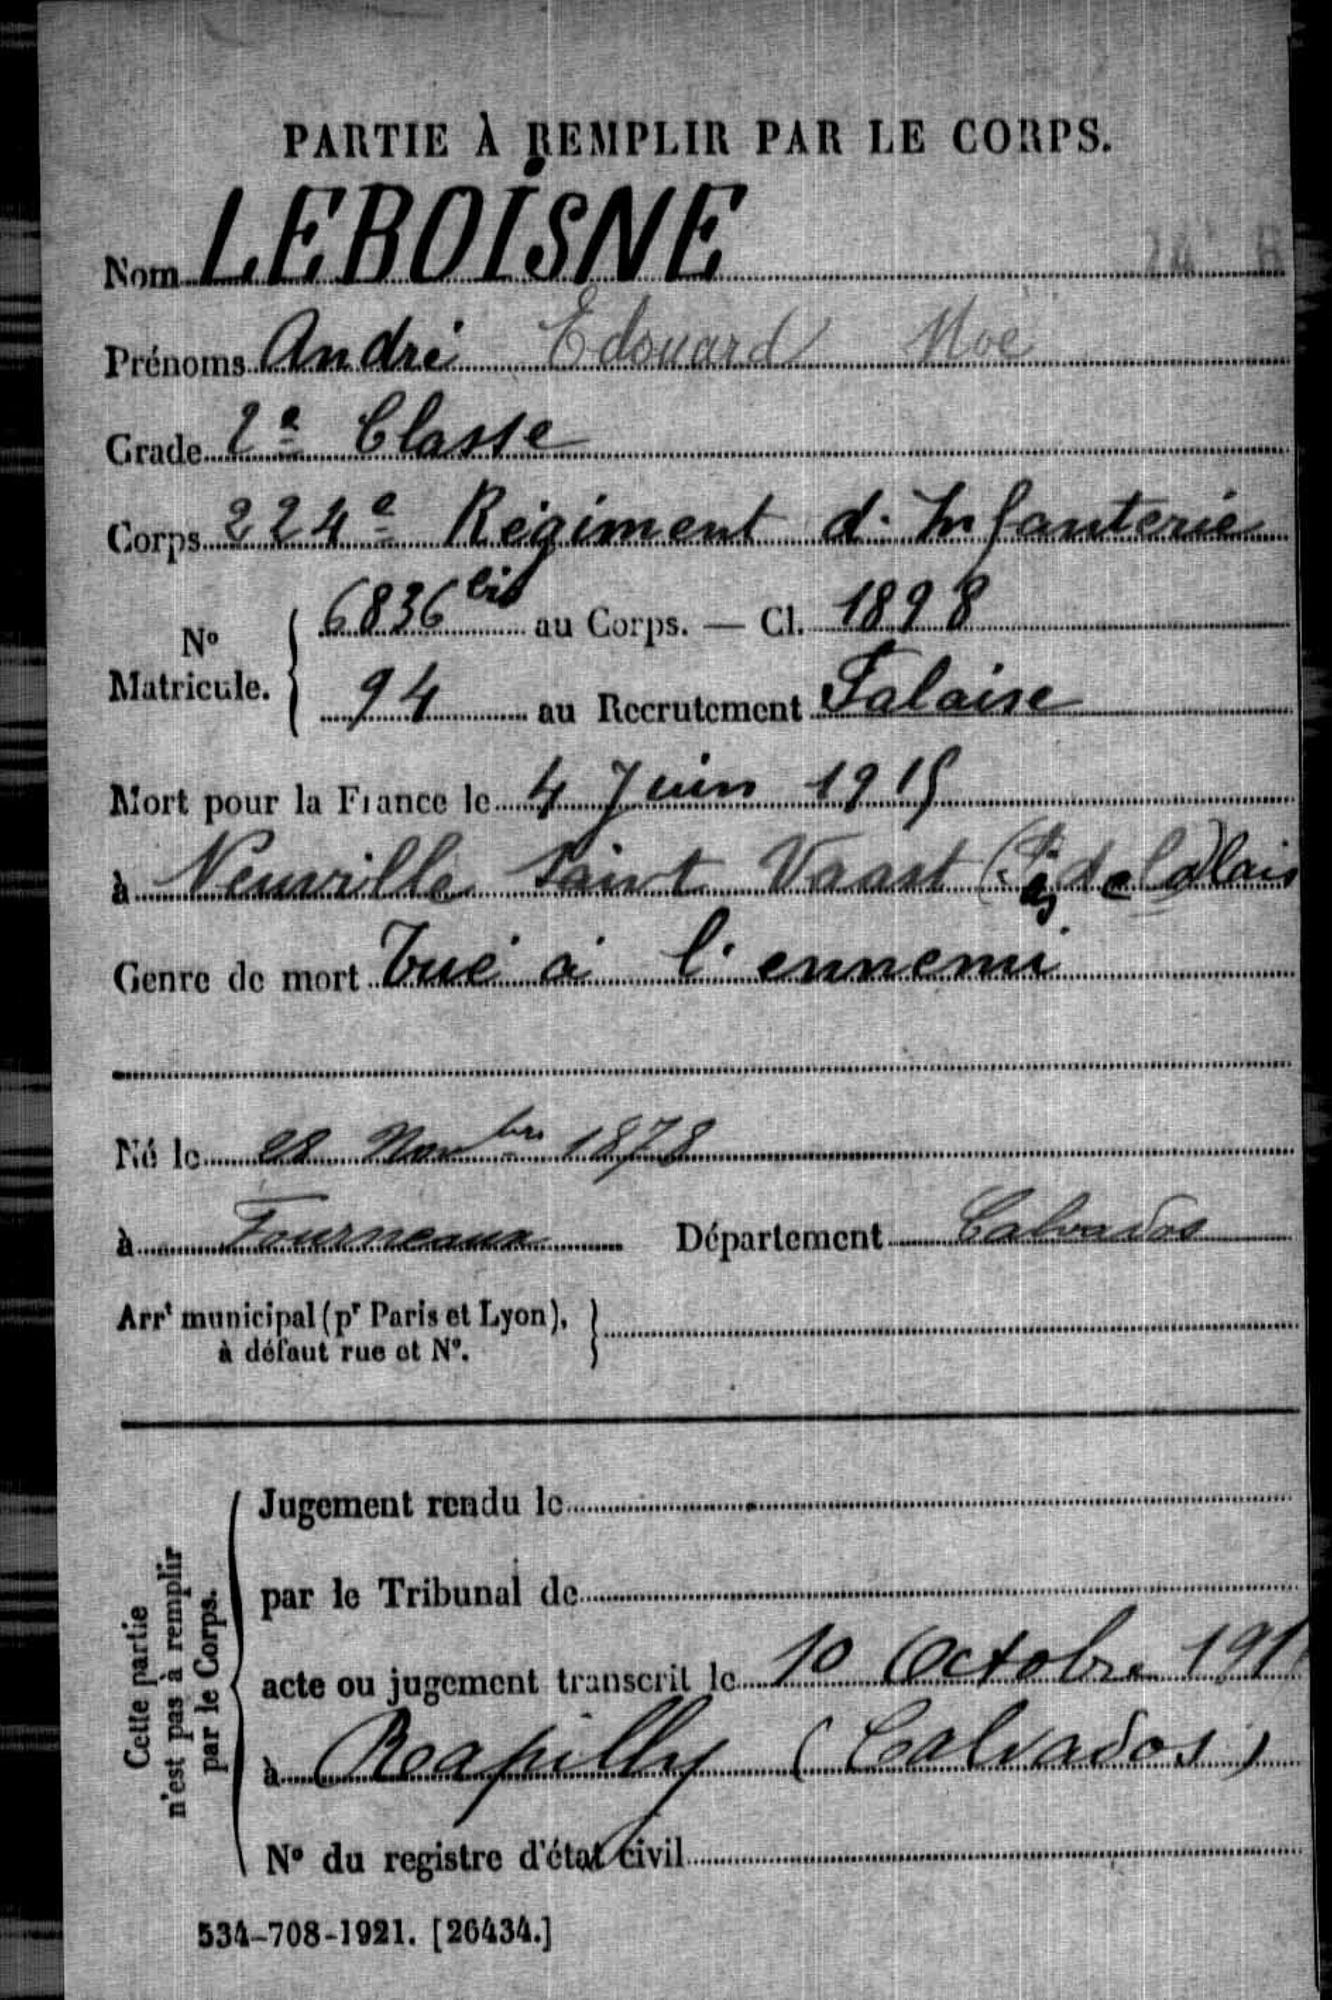 PARTIE À REMPLIR PAR LE CORPS.
Nom LEBOISNE
Prénoms André Edouard Noé
Grade 2e Classe
Corps 224e Régiment d'Infanterie
No Matricule. 6836 bis au Corps. — Cl. 1898
94 au Recrutement Falaise
Mort pour la France le 4 Juin 1915
à Neuville Saint Vaast (Pas de Calais
Genre de mort Tué à l'ennemi
Né le 28 Novbre 1878
à Fourneaux Département Calvados
Arrt municipal (pr Paris et Lyon),
à défaut rue et No.
Cette partie
n'est pas à remplir
par le Corps.
Jugement rendu le
par le Tribunal de
acte ou jugement transcrit le 10 Octobre
à Rapilly (Calvados)
No du registre d'état civil
534-708-1921. [26434.]